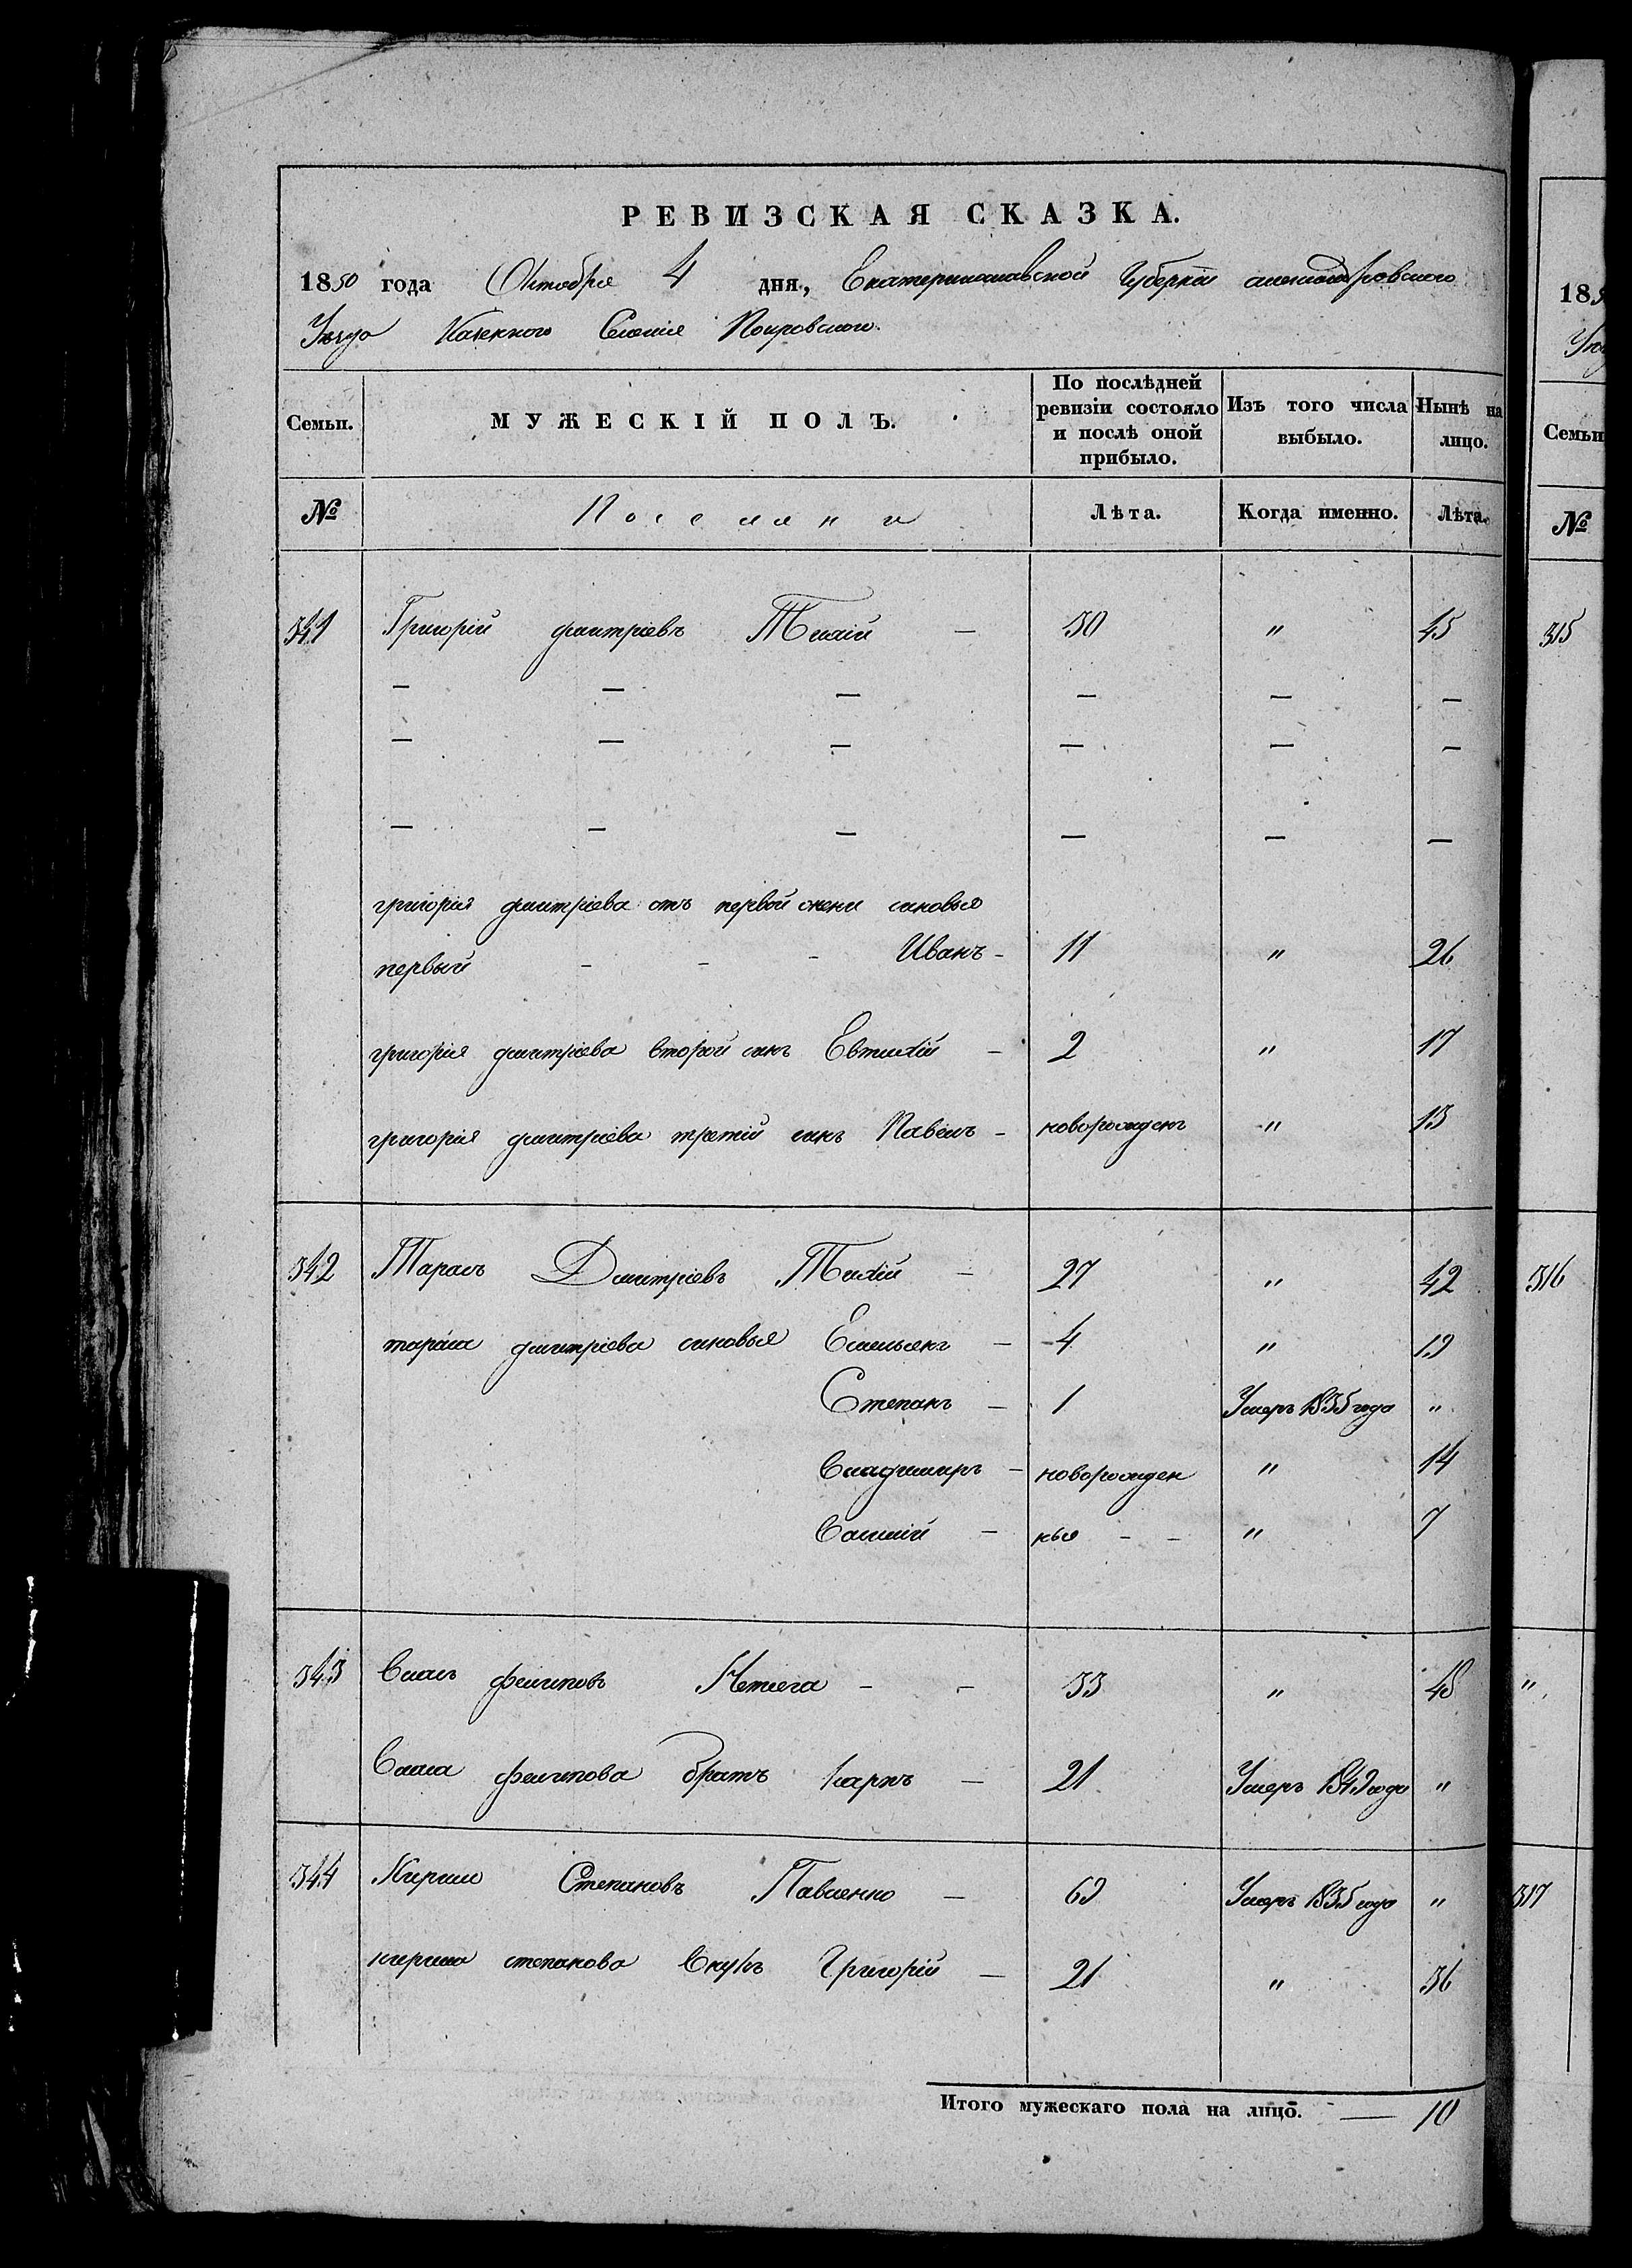 РЕВИЗСКАЯ СКАЗКА.
1850 года Октября 4 дня, Екатеринославской Губерніи александровского
Уезда Казенного Селенія Покровского.
Семьи. МУЖЕСКІЙ ПОЛЪ. По послѣдней ревизіи состояло и послѣ оной прибыло. Изъ того числа выбыло. Нынѣ на лицо.
№ Поселяни Лѣта. Когда именно. Лѣта.
341 Григорій дмитріевъ Тихій — 30 " 45
— — — — — —
— — — — — —
— — — — — —
григорія дмитріева отъ первой жени синовья
первый - - - Иванъ - 11 " 26
григорія дмитріева второй синъ Евтихій - 2 " 17
григорія дмитріева третій синъ Павелъ - новорожденъ " 13
342 Тарасъ Дмитріевъ Тихій — 27 " 42
тараса дмитріева синовья Емельянъ — 4 " 19
Степанъ — 1 Умеръ 1835 года "
Владимиръ - новорожден " 14
Василій - ные - - " 7
343 Власъ филиповъ - - 33 " 48
Власа филипова братъ карпъ — 21 Умеръ 1849 года "
344 Кирило Степановъ Павленко — 69 Умеръ 1835 года "
кирила степанова Внукъ Григорій — 21 " 36
Итого мужескаго пола на лицо. — 10
18
Семьи
№
315
316
"
317